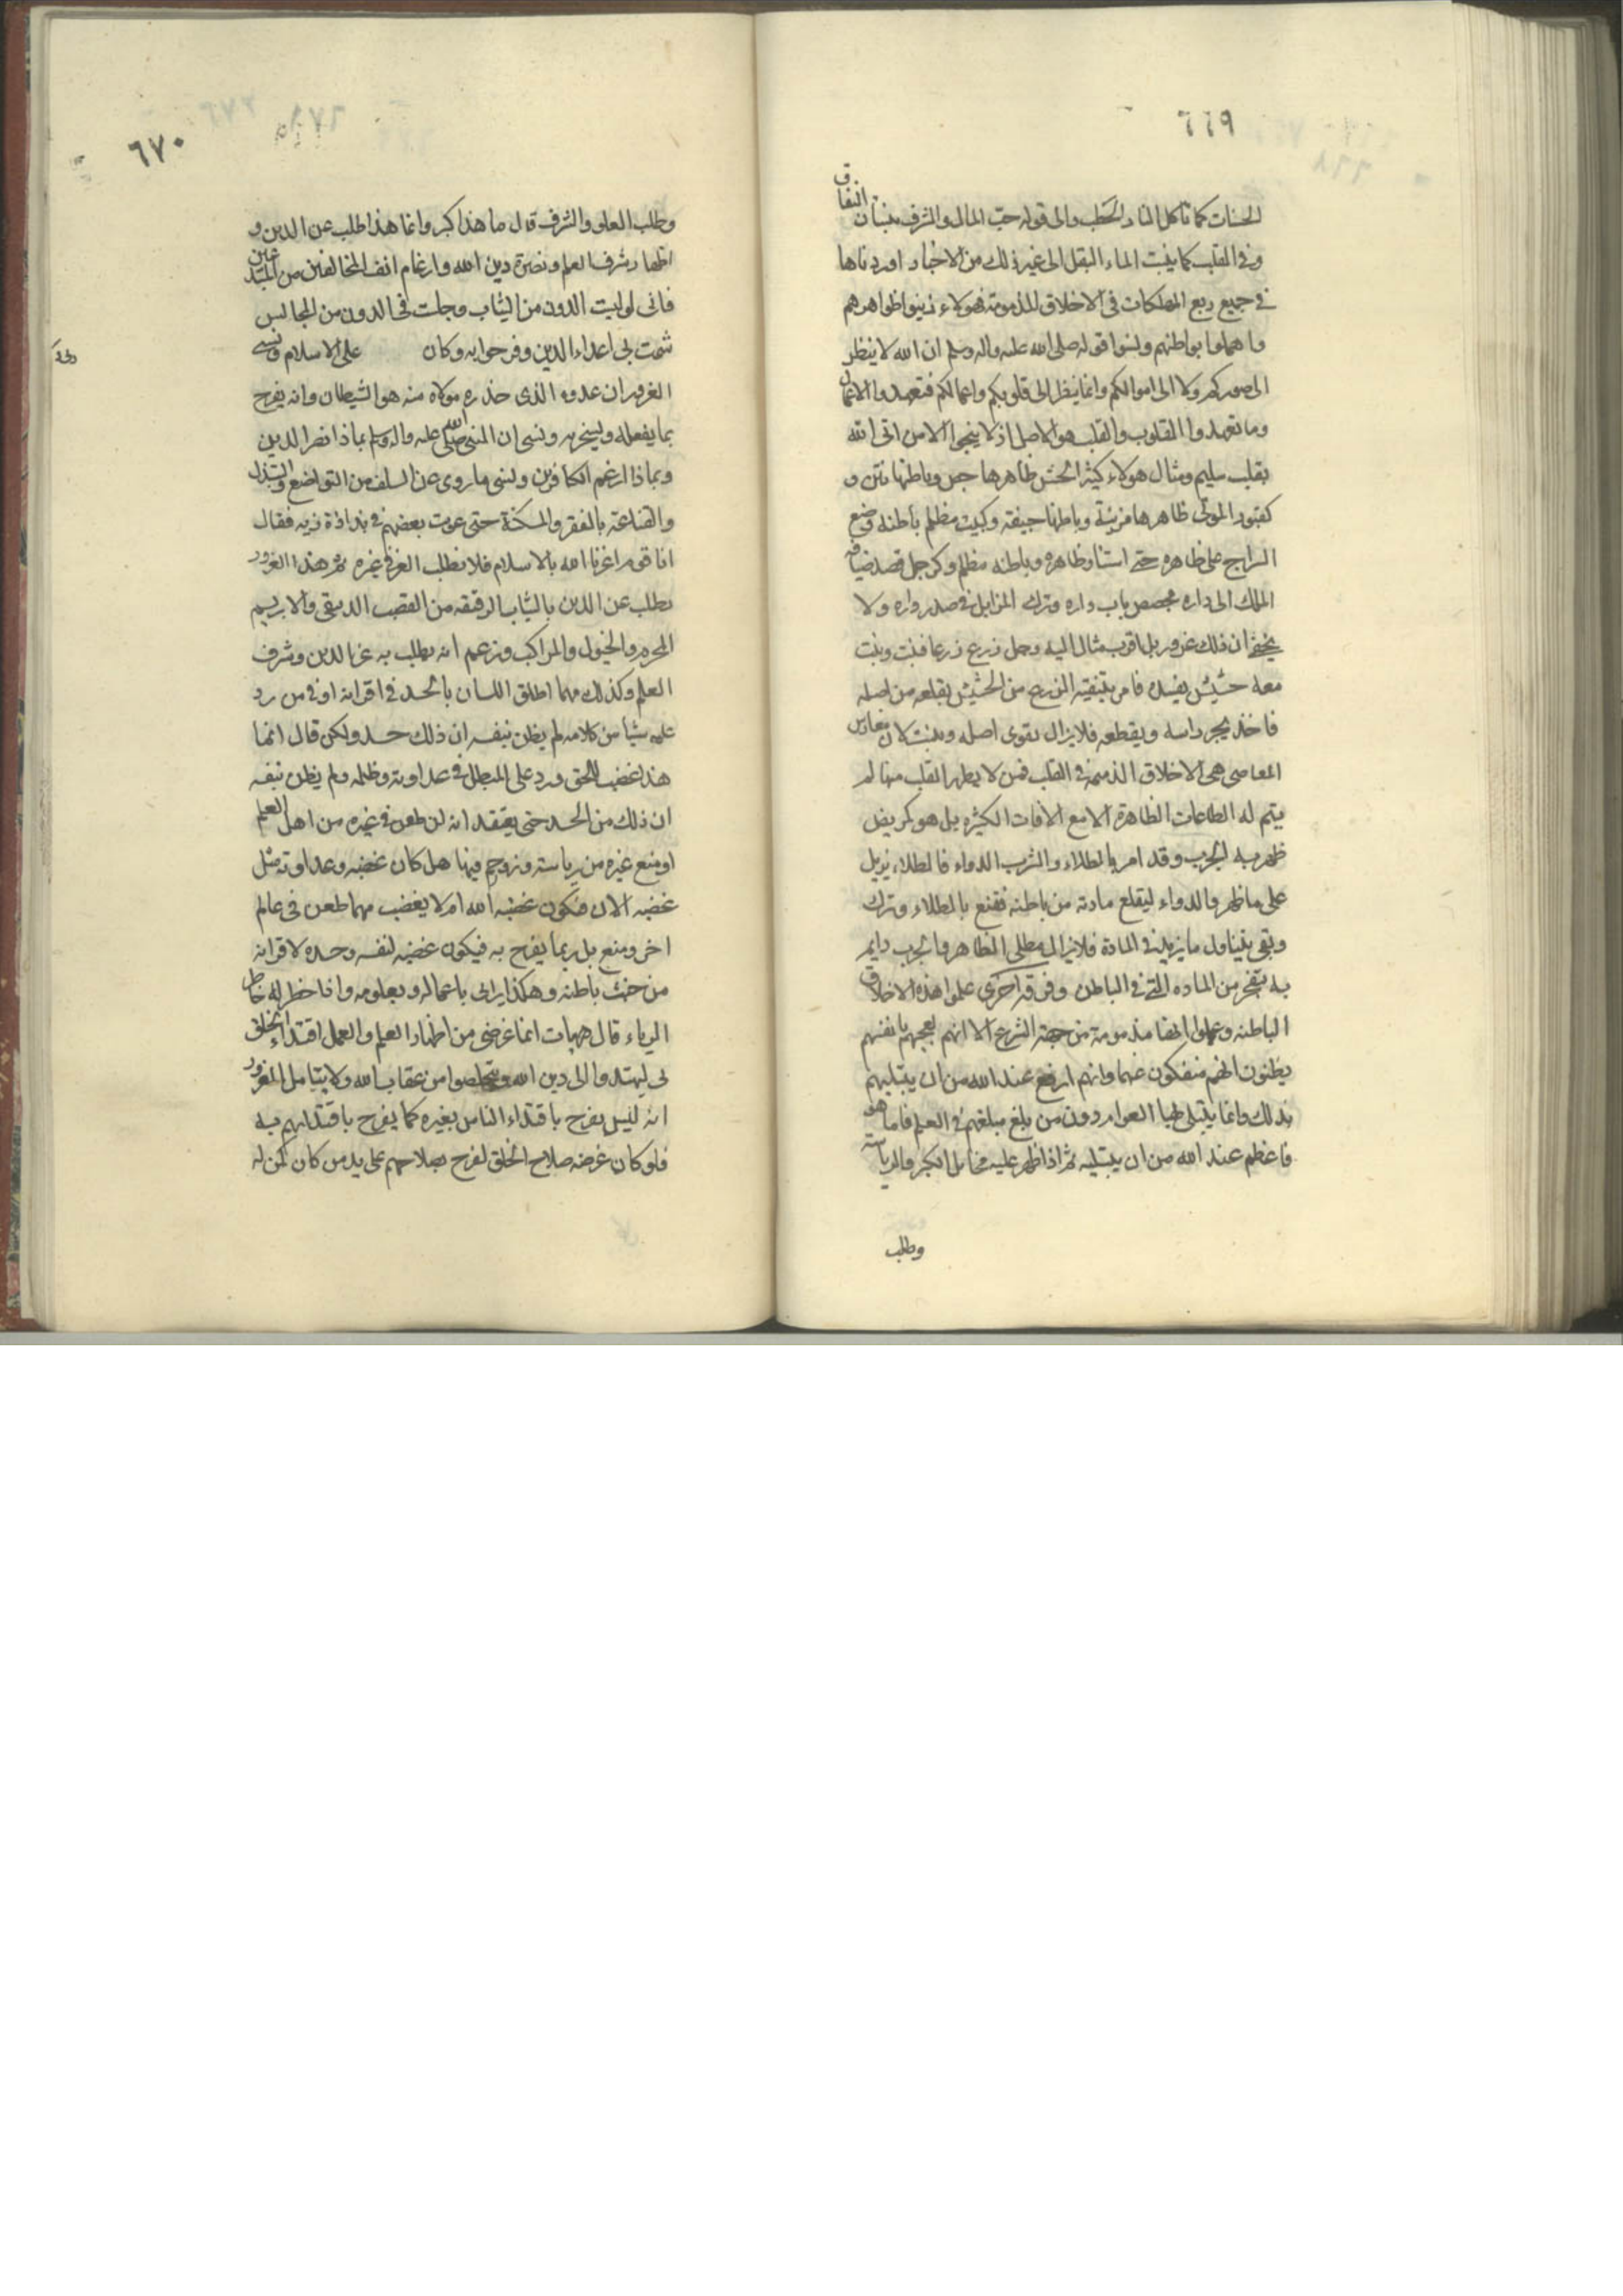 ٦٦٩
الحسنات كما تاكل النار الحطب والى قوله حب المال والشرف ينبتان النفاق
و في القلب كما ينبت الماء البقل الى غير ذلك من الاخبار اوردناها
في جميع ربع المهلكات في الاخلاق المذمومة فهولاء زينوا ظواهرهم
واهملوا بواطنهم ونسوا قوله صلى الله عليه واله وسلم ان الله لا ينظر
الى صوركم ولا الى اموالكم وانما ينظر الى قلوبكم واعمالكم فتعهدوا الاعمال
وما تعهدوا القلوب والقلب هو الاصل اذ لا ينجي الا من اتى الله
بقلب سليم ومثال هولاء كبئر الحش ظاهرها جص وباطنها نتن و
كقبور الموتى ظاهرها مزينة وباطنها جيفة وكبيت مظلم باطنه وضع
السراج على ظاهره حتى استنار ظاهره وباطنه مظلم وكرجل قصد ضيافة
الملك الى داره فجصص باب داره وترك المزابل في صدر داره ولا
يخفى ان ذلك غرور بل اقرب مثال اليه رجل زرع زرعا فنبت ونبت
معه حشيش يفسده فامر بتنقية الزرع من الحشيش بقلعه من اصله
فاخذ يجز راسه ويقطعه فلا يزال يقوى اصله وينبت لان مغارس
المعاصي هي الاخلاق الذميمة في القلب فمن لا يطهر القلب منها لم
يتم له الطاعات الظاهرة الا مع الافات الكثيره بل هو كمريض
ظهر به الجرب وقد امر بالطلاء والشرب الدواء فالطلاء يزيل
على ما ظهر والدواء ليقلع مادته من باطنه فقنع بالطلاء وترك
وبقي يتناول ما يزيد في المادة فلا يزال يطلى الظاهر والجرب دايم
به يتفجر من الماده التي في الباطن وفرقة اخرى علموا هذه الاخلاق
الباطنه وعلموا انها مذمومة من جهة الشرع الا انهم لعجبهم بانفسهم
يظنون انهم منفكون عنها وانهم ارفع عند الله من ان يبتليهم
بذلك وانما يبتلى بها العوام دون من بلغ مبلغهم في العلم فاما هو
فاعظم عند الله من ان يبتليه ثم اذا ظهر عليه مخايل الكبر والرياسة
وطلب
٦٧٠
وطلب العلو والشرف قال ما هذا كبر وانما هذا طلب عز الدين و
اظهار شرف العلم ونصرة دين الله وارغام انف المخالفين من المبتدعين
فانى لو لبست الدون من الثياب وجلست في الدون من المجالس
شمت بي اعداء الدين وفرحوا به وكان على الاسلام ونسى
المغرور ان عدوه الذى حذره مولاه منه هو الشيطان وانه يفرح
بما يفعله ويسخر به ونسى ان النبي صلى الله عليه واله وسلم بماذا نصر الدين
وبماذا ارغم الكافرين ونسى ما روى عن السلف من التواضع والتبذل
والقناعة بالفقر والمسكنة حتى عوتب بعضهم في بذاذة زيه فقال
انا قوم اعزنا الله بالاسلام فلا نطلب العز في غيره ثم هذا المغرور
يطلب عز الدين بالثياب الرقيقه من القصب الدبيقى والابريسم
المحرم والخيول والمراكب ويزعم انه يطلب به عز الدين وشرف
العلم وكذلك مهما اطلق اللسان بالحسد في اقرانه او في من رد
عليه شيئا من كلامه لم يظن بنفسه ان ذلك حسد ولكن قال انما
هذا غضب للحق ورد على المبطل في عداوته وظلمه ولم يظن بنفسه
ان ذلك من الحسد حتى يعتقد انه لو طعن في غيره من اهل العلم
او منع غيره من رياسة وزوحم فيها هل كان غضبه وعداوته مثل
غضبه الان فيكون غضبه لله ام لا يغضب مهما طعن في عالم
اخر ومنع بل ربما يفرح به فيكون غضبه لنفسه وحسده لاقرانه
من خبث باطنه وهكذا يرائى باعماله وبعلومه واذا خطر له خاطر
الرياء قال هيهات انما غرضى من اظهار العلم والعمل اقتداء الخلق
بى ليهتدوا الى دين الله ويتخلصوا من عقاب الله ولا يتامل المغرور
انه ليس يفرح باقتداء الناس بغيره كما يفرح باقتدائهم به
فلو كان غرضه صلاح الخلق لفرح بصلاحهم على يد من كان كمن له